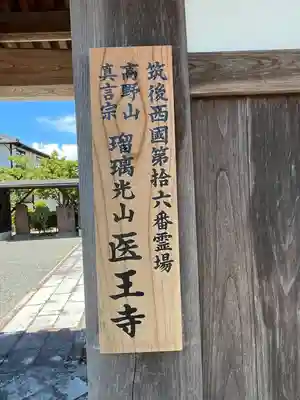 筑後西國第拾六番霊場
高野山
真言宗
瑠璃光山医王寺